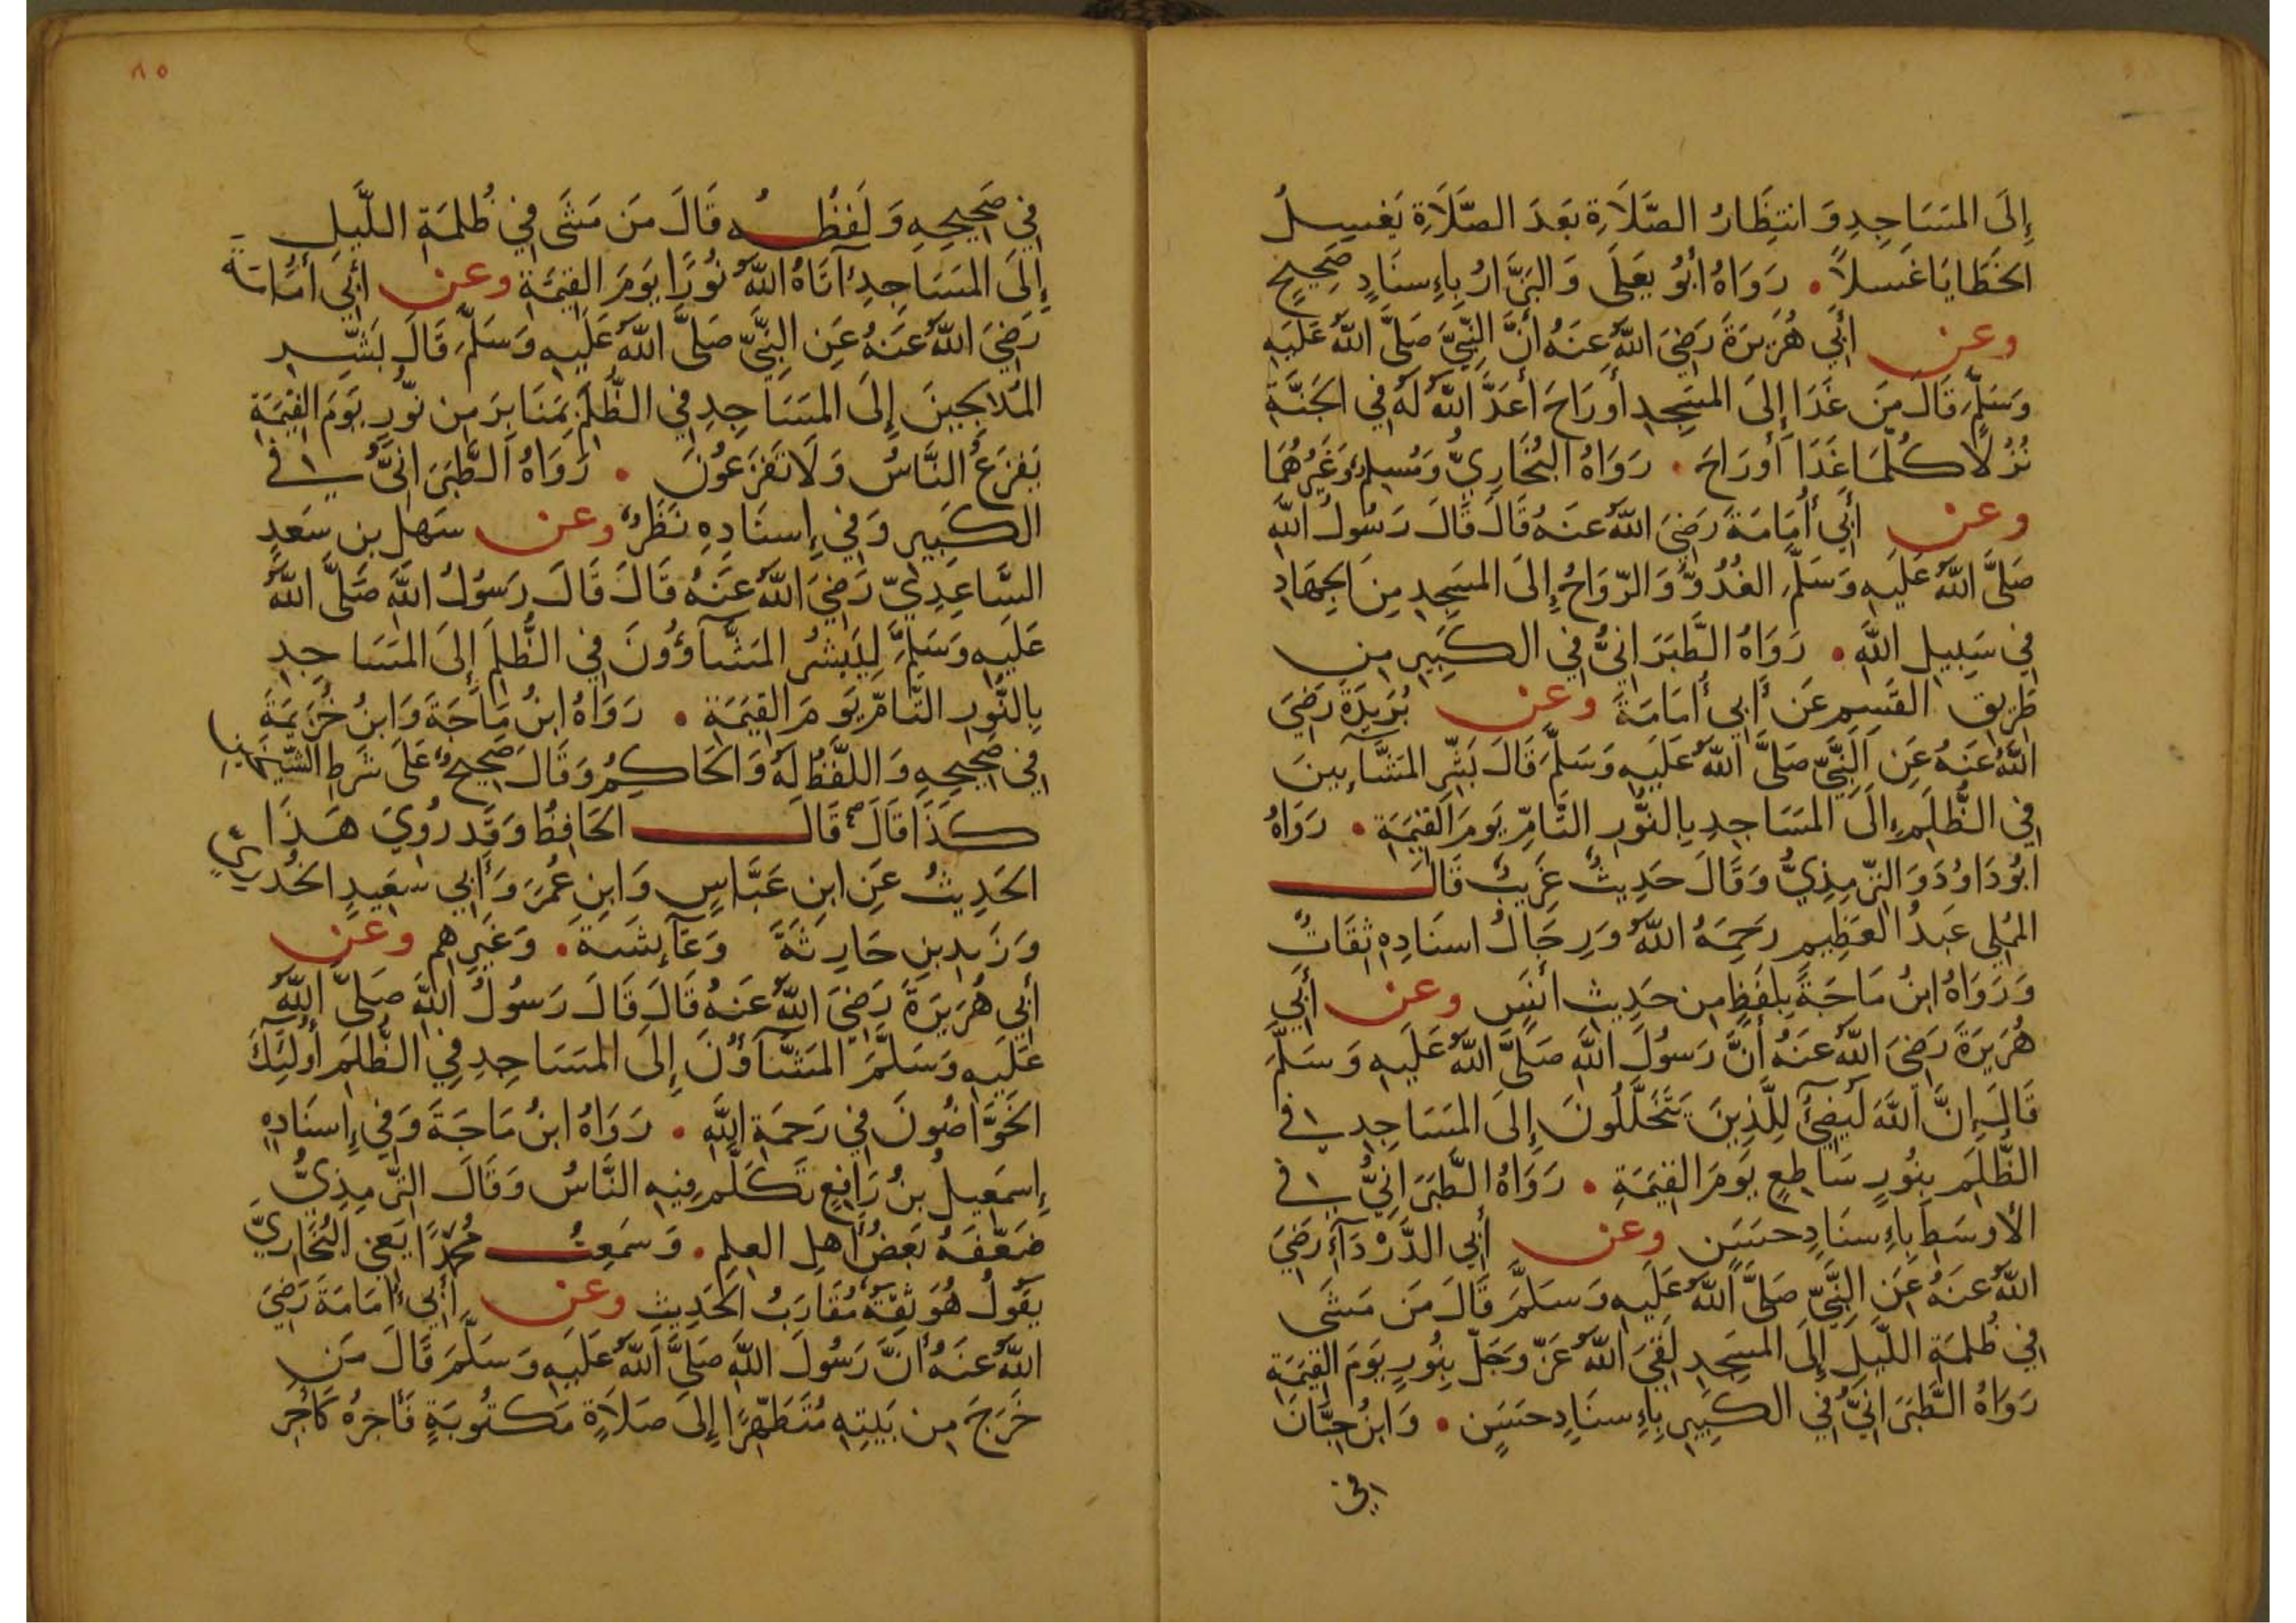 إِلَى المَسَاجِدِ وَانتِظَارُ الصَّلَاةِ بَعدَ الصَّلَاةِ يَغسِلُ
الخَطَايَا غَسلًا . رَوَاهُ أَبُو يَعلَى وَالبَزَّارُ بِإِسنَادٍ صَحِيحٍ
وعن أَبِي هُرَيرَةَ رَضِيَ اللَّهُ عَنهُ أَنَّ النَّبِيَّ صَلَّى اللَّهُ عَلَيهِ
وَسَلَّمَ قَالَ مَن غَدَا إِلَى المَسجِدِ أَورَاحَ أَعَدَّ اللَّهُ لَهُ فِي الجَنَّةِ
نُزُلًا كُلَّمَا غَدَا أَورَاحَ . رَوَاهُ البُخَارِيُّ وَمُسلِمٌ وَغَيرُهُمَا
وعن أَبِي أُمَامَةَ رَضِيَ اللَّهُ عَنهُ قَالَ قَالَ رَسُولُ اللَّهِ
صَلَّى اللَّهُ عَلَيهِ وَسَلَّمَ الغُدُوُّ وَالرَّوَاحُ إِلَى المَسجِدِ مِنَ الجِهَادِ
فِي سَبِيلِ اللَّهِ . رَوَاهُ الطَّبَرَانِيُّ فِي الكَبِيرِ مِن
طَرِيقِ القَسِمِ عَن أَبِي أُمَامَةَ وعن بُرَيدَةَ رَضِيَ
اللَّهُ عَنهُ عَنِ النَّبِيِّ صَلَّى اللَّهُ عَلَيهِ وَسَلَّمَ قَالَ بَشِّرِ المَشَّآيِينَ
فِي الظُّلَمِ إِلَى المَسَاجِدِ بِالنُّورِ التَّامِّ يَومَ القِيَمَةِ . رَوَاهُ
ابُو دَاوُدَ وَالتِّرمِذِيُّ وَقَالَ حَدِيثٌ غَرِيبٌ قَالَ
المُملِي عَبدُ العَظِيمِ رَحِمَهُ اللَّهُ وَرِجَالُ اسنَادِهِ ثِقَاتٌ
وَرَوَاهُ ابنُ مَاجَةَ بِلَفظٍ مِن حَدِيثِ أَنَسٍ وعن أَبِي
هُرَيرَةَ رَضِيَ اللَّهُ عَنهُ أَنَّ رَسُولَ اللَّهِ صَلَّى اللَّهُ عَلَيهِ وَسَلَّمَ
قَالَ إِنَّ اللَّهَ لَيُضِيٓءُ لِلَّذِينَ يَتَخَلَّلُونَ إِلَى المَسَاجِدِ فِي
الظُّلَمِ بِنُورٍ سَاطِعٍ يَومَ القِيَمَةِ . رَوَاهُ الطَّبَرَانِيُّ فِي
الأَوسَطِ بِإِسنَادٍ حَسَنٍ وعن أَبِي الدَّردَآءِ رَضِيَ
اللَّهُ عَنهُ عَنِ النَّبِيِّ صَلَّى اللَّهُ عَلَيهِ وَسَلَّمَ قَالَ مَن مَشَى
فِي ظُلمَةِ اللَّيلِ إِلَى المَسجِدِ لَقِيَ اللَّهَ عَزَّ وَجَلَّ بِنُورٍ يَومَ القِيَمَةِ
رَوَاهُ الطَّبَرَانِيُّ فِي الكَبِيرِ بِإِسنَادٍ حَسَنٍ . وَابنُ حِبَّانَ
في
٨٥
فِي صَحِيحِهِ وَلَفظُهُ قَالَ مَن مَشَى فِي ظُلمَةِ اللَّيلِ
إِلَى المَسَاجِدِ آتَاهُ اللَّهُ نُورًا يَومَ القِيَمَةِ وعن أَبِي أُمَامَةَ
رَضِيَ اللَّهُ عَنهُ عَنِ النَّبِيِّ صَلَّى اللَّهُ عَلَيهِ وَسَلَّمَ قَالَ بَشِّرِ
المُدلِجِينَ إِلَى المَسَاجِدِ فِي الظُّلَمِ بِمَنَابِرَ مِن نُورٍ يَومَ القِيَمَةِ
يَفزَعُ النَّاسُ وَلَا يَفزَعُونَ . رَوَاهُ الطَّبَرَانِيُّ فِي
الكَبِيرِ وَفِي إِسنَادِهِ نَظَرٌ وعن سَهلِ بنِ سَعدٍ
السَّاعِدِيِّ رَضِيَ اللَّهُ عَنهُ قَالَ قَالَ رَسُولُ اللَّهِ صَلَّى اللَّهُ
عَلَيهِ وَسَلَّمَ لِيَبشرِ المَشَّآؤُونَ فِي الظُّلَمِ إِلَى المَسَاجِدِ
بِالنُّورِ التَّامِّ يَومَ القِيَمَةِ . رَوَاهُ ابنُ مَاجَةَ وَابنُ خُزَيمَةَ
فِي صَحِيحِهِ وَاللَّفظُ لَهُ وَالحَاكِمُ وَقَالَ صَحِيحٌ عَلَى شَرطِ الشَّيخَينِ
كَذَا قَالَ قَالَ الحَافِظُ وَقَد رُوِيَ هَذَا
الحَدِيثُ عَنِ ابنِ عَبَّاسٍ وَابنِ عُمَرَ وَأَبِي سَعِيدٍ الخُدرِيِّ
وَزَيدِ بنِ حَارِثَةَ وَعَآئِشَةَ . وَغَيرِهِم وعن
أَبِي هُرَيرَةَ رَضِيَ اللَّهُ عَنهُ قَالَ قَالَ رَسُولُ اللَّهِ صَلَّى اللَّهُ
عَلَيهِ وَسَلَّمَ المَشَّآؤُنَ إِلَى المَسَاجِدِ فِي الظُّلَمِ أُولَئِكَ
الخَوَّاضُونَ فِي رَحمَةِ اللَّهِ . رَوَاهُ ابنُ مَاجَةَ وَفِي إِسنَادِهِ
إِسمَعِيلُ بنُ رَافِعٍ تَكَلَّمَ فِيهِ النَّاسُ وَقَالَ التِّرمِذِيُّ
ضَعَّفَهُ بَعضُ أَهلِ العِلمِ . وَسَمِعتُ مُحَمَّدًا يَعنِي البُخَارِيَّ
يَقُولُ هُوَ ثِقَةٌ مُقَارَبُ الحَدِيثِ وعن أَبِي أُمَامَةَ رَضِيَ
اللَّهُ عَنهُ أَنَّ رَسُولَ اللَّهِ صَلَّى اللَّهُ عَلَيهِ وَسَلَّمَ قَالَ مَن
خَرَجَ مِن بَيتِهِ مُتَطَهِّرًا إِلَى صَلَاةٍ مَكتُوبَةٍ فَأَجرُهُ كَأَجرِ